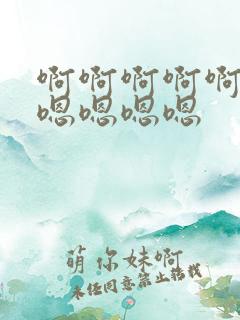 啊啊啊啊啊
嗯嗯嗯嗯
萌你妹啊
未经同意禁止转载